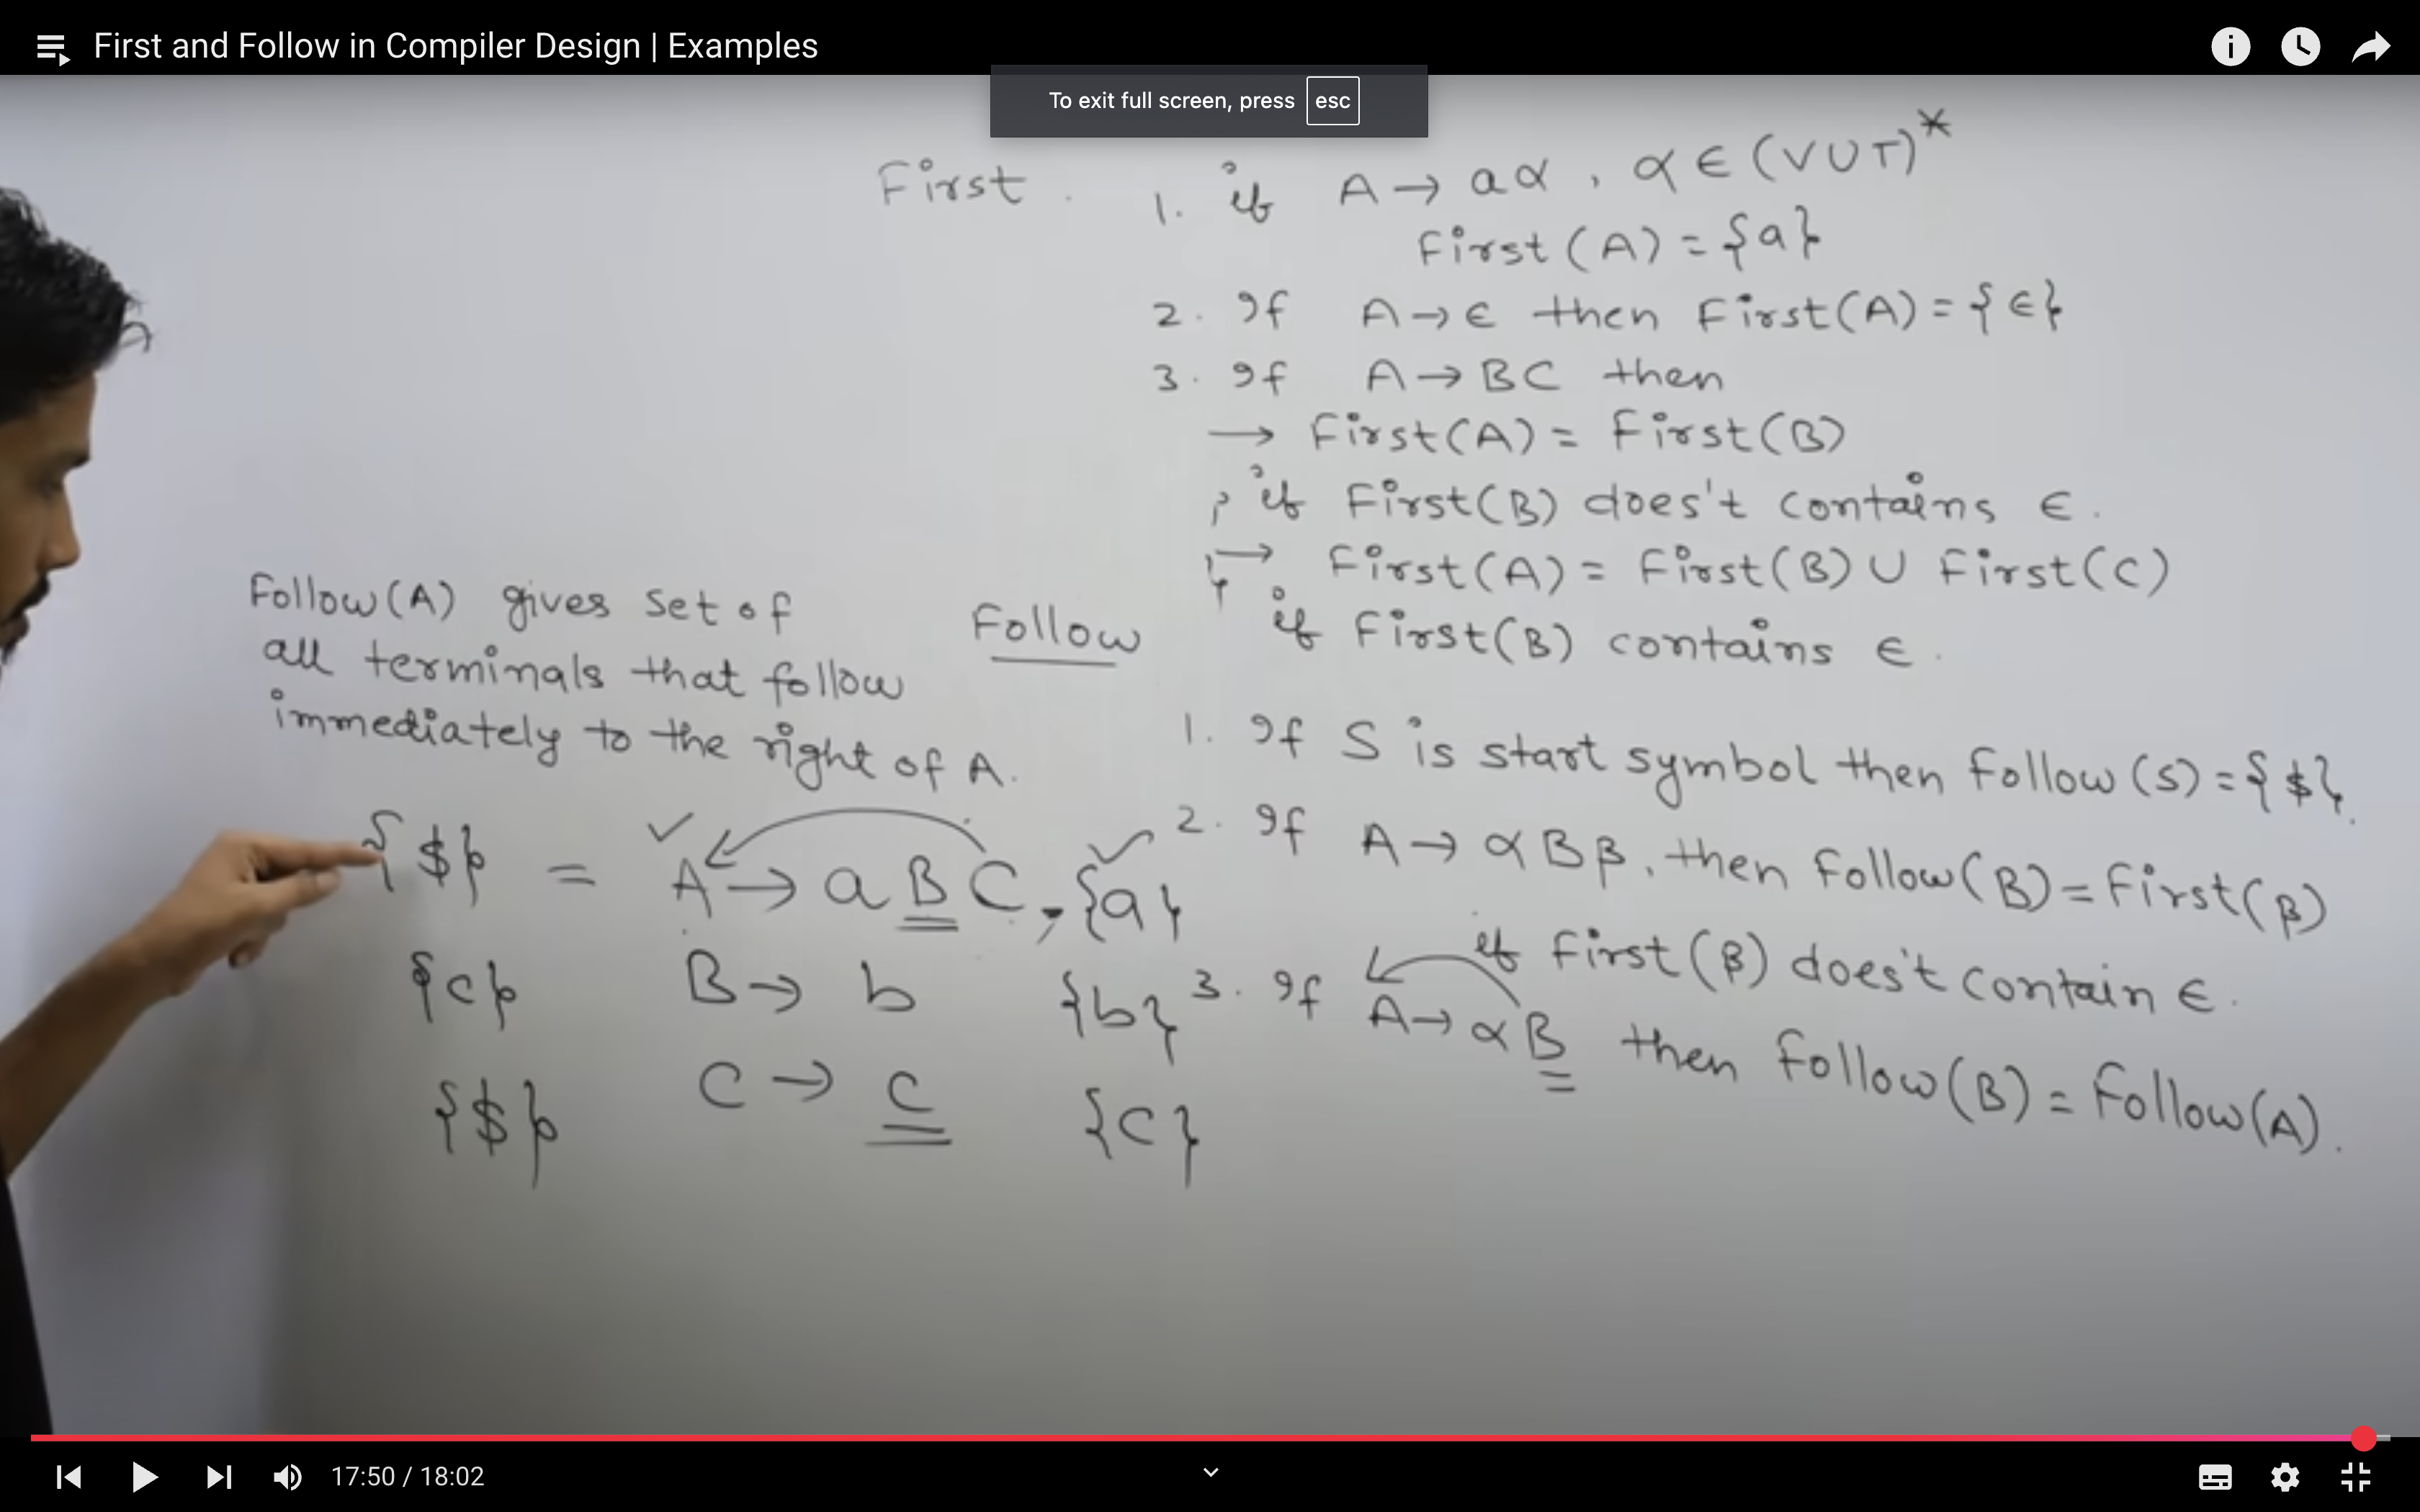 First and Follow in Compiler Design | Examples
To exit full screen, press esc
First. 1. if A → aα, α ∈ (VUT)*
First(A) = {a}
2. If A → ∈ then First(A) = {∈}
3. If A → BC then
→ First(A) = First(B)
if First(B) does't contains ∈.
→ First(A) = First(B) U First(C)
if First(B) contains ∈.
Follow(A) gives set of
all terminals that follow
immediately to the right of A.
Follow
1. If S is start symbol then Follow(S) = {$}.
2. If A → αBβ, then Follow(B) = First(β)
if First(β) does't contain ∈.
3. If A → αB then Follow(B) = Follow(A).
{$} = A → aBC, {a}
{c} B → b {b}
{$} C → c {c}
17:50 / 18:02